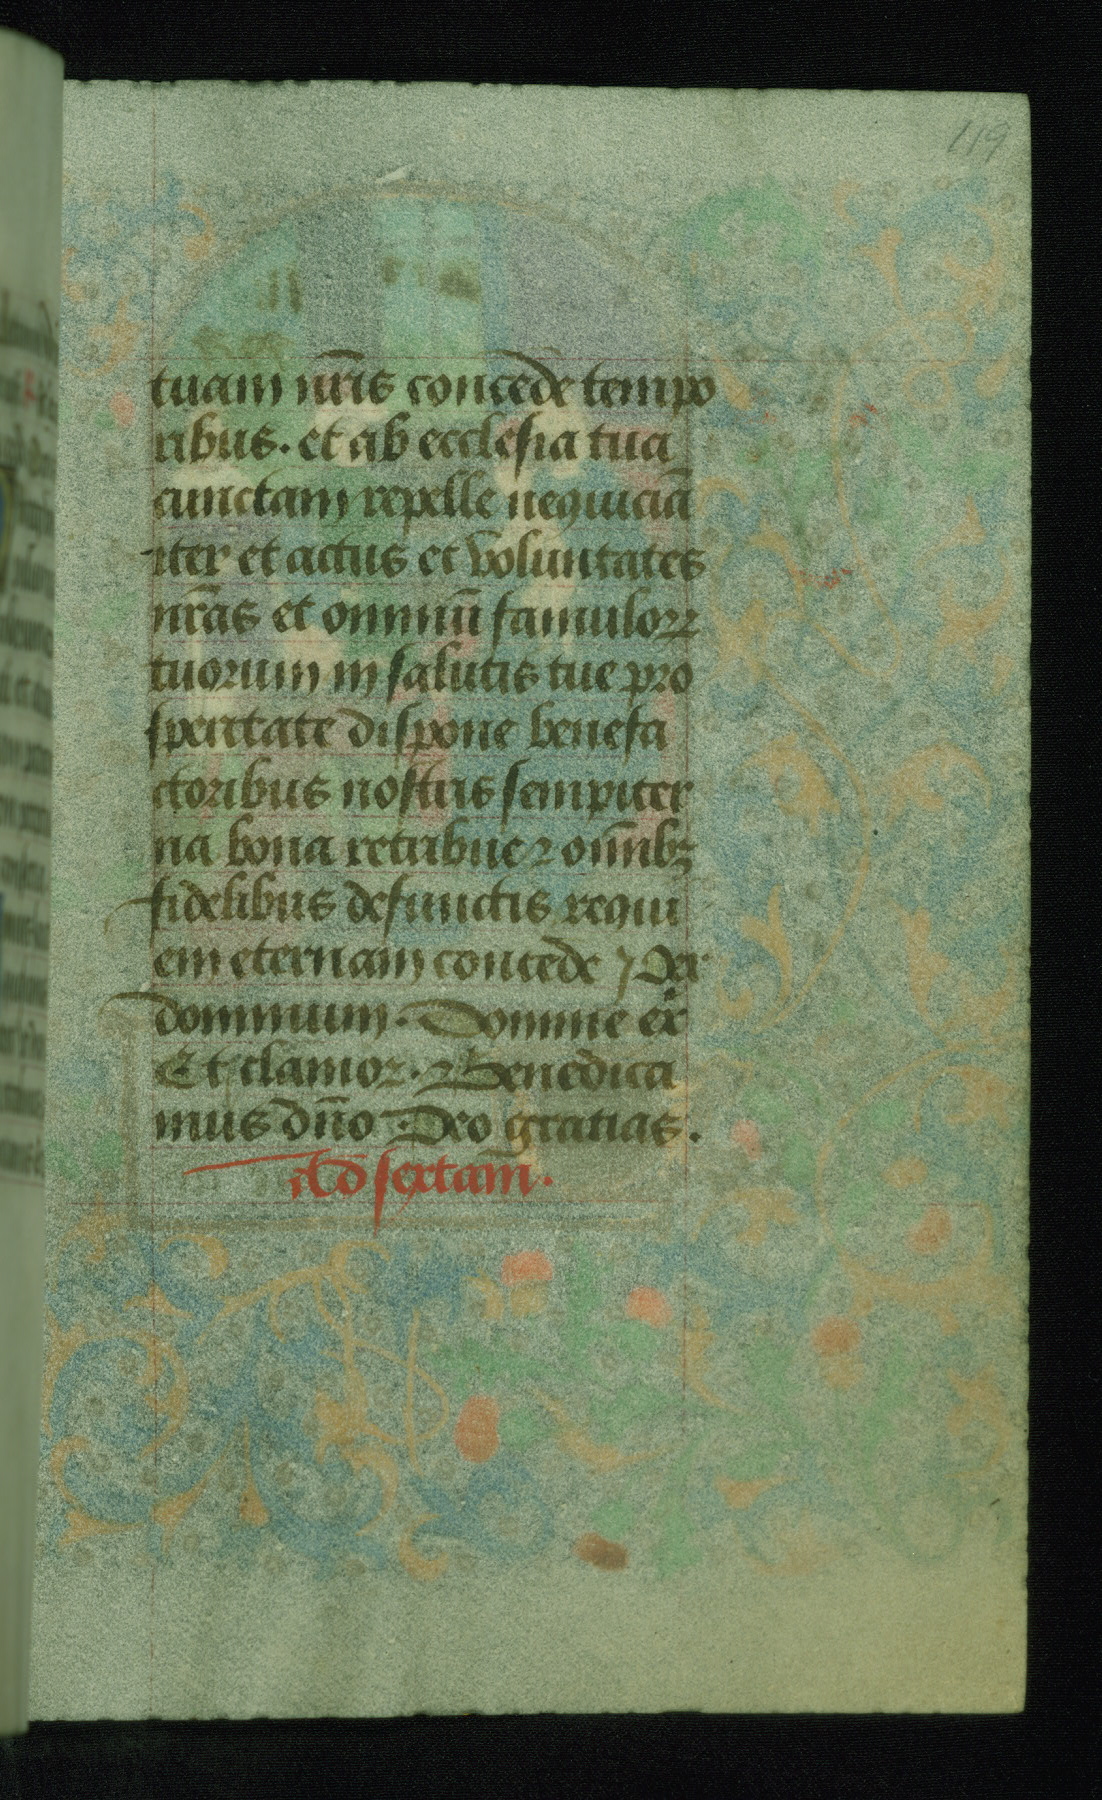 119
tuam nr̄is concede tempo
ribus. et ab ecclesia tua
cunctam repelle nequiciā
iter et actus et voluntates
nr̄as et omniū famuloꝝ
tuorum in salutis tue pro
speritate dispone benefa
ctoribus nostris sempiter
na bona retribue ⁊ omībꝫ
fidelibus defunctis requi
em eternam concede Per
dominum. Domine ex̄
Et clamor. Benedica
mus dn̄o Deo gratias.
Ad sextam.